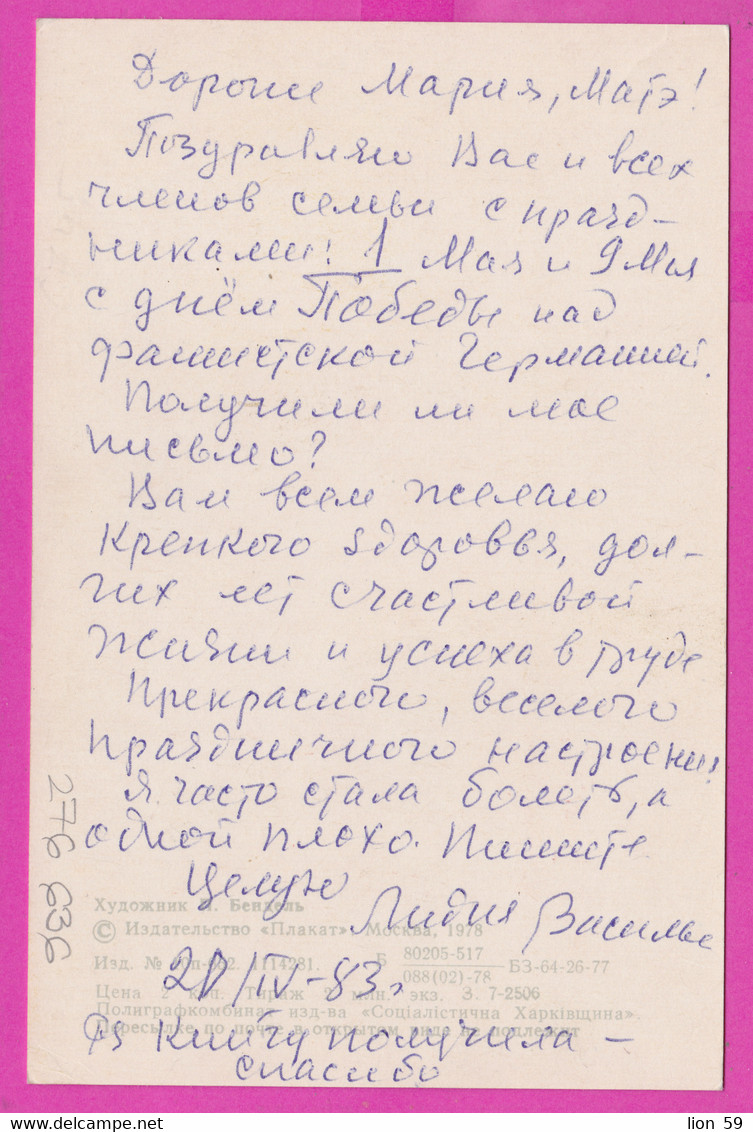 Дорогие Мария, Матэ!
Поздравляю Вас и всех
членов семьи с празд-
никами: 1 Мая и 9 Мая
с днём Победы над
фашистской Германией.
Получили ли мое
письмо?
Вам всем желаю
крепкого здоровья, дол-
гих лет счастливой
жизни и успеха в труде
Прекрасного, веселого
праздничного настроения
Я часто стала болеть, а
одной плохо. Пишите
Целую
Лидия Василье
Художник П. Бендель
© Издательство «Плакат» Москва, 1978
Изд. № 1114281. Б 80205-517 БЗ-64-26-77
088(02)-78
/IV-83г
Цена 2 коп. Тираж 2 млн. экз. З. 7-2506
Полиграфкомбинат изд-ва «Соціалістична Харківщина».
Пересылке по почте в открытом виде не подлежит
Книгу получила –
спасибо
276 636
lion 59